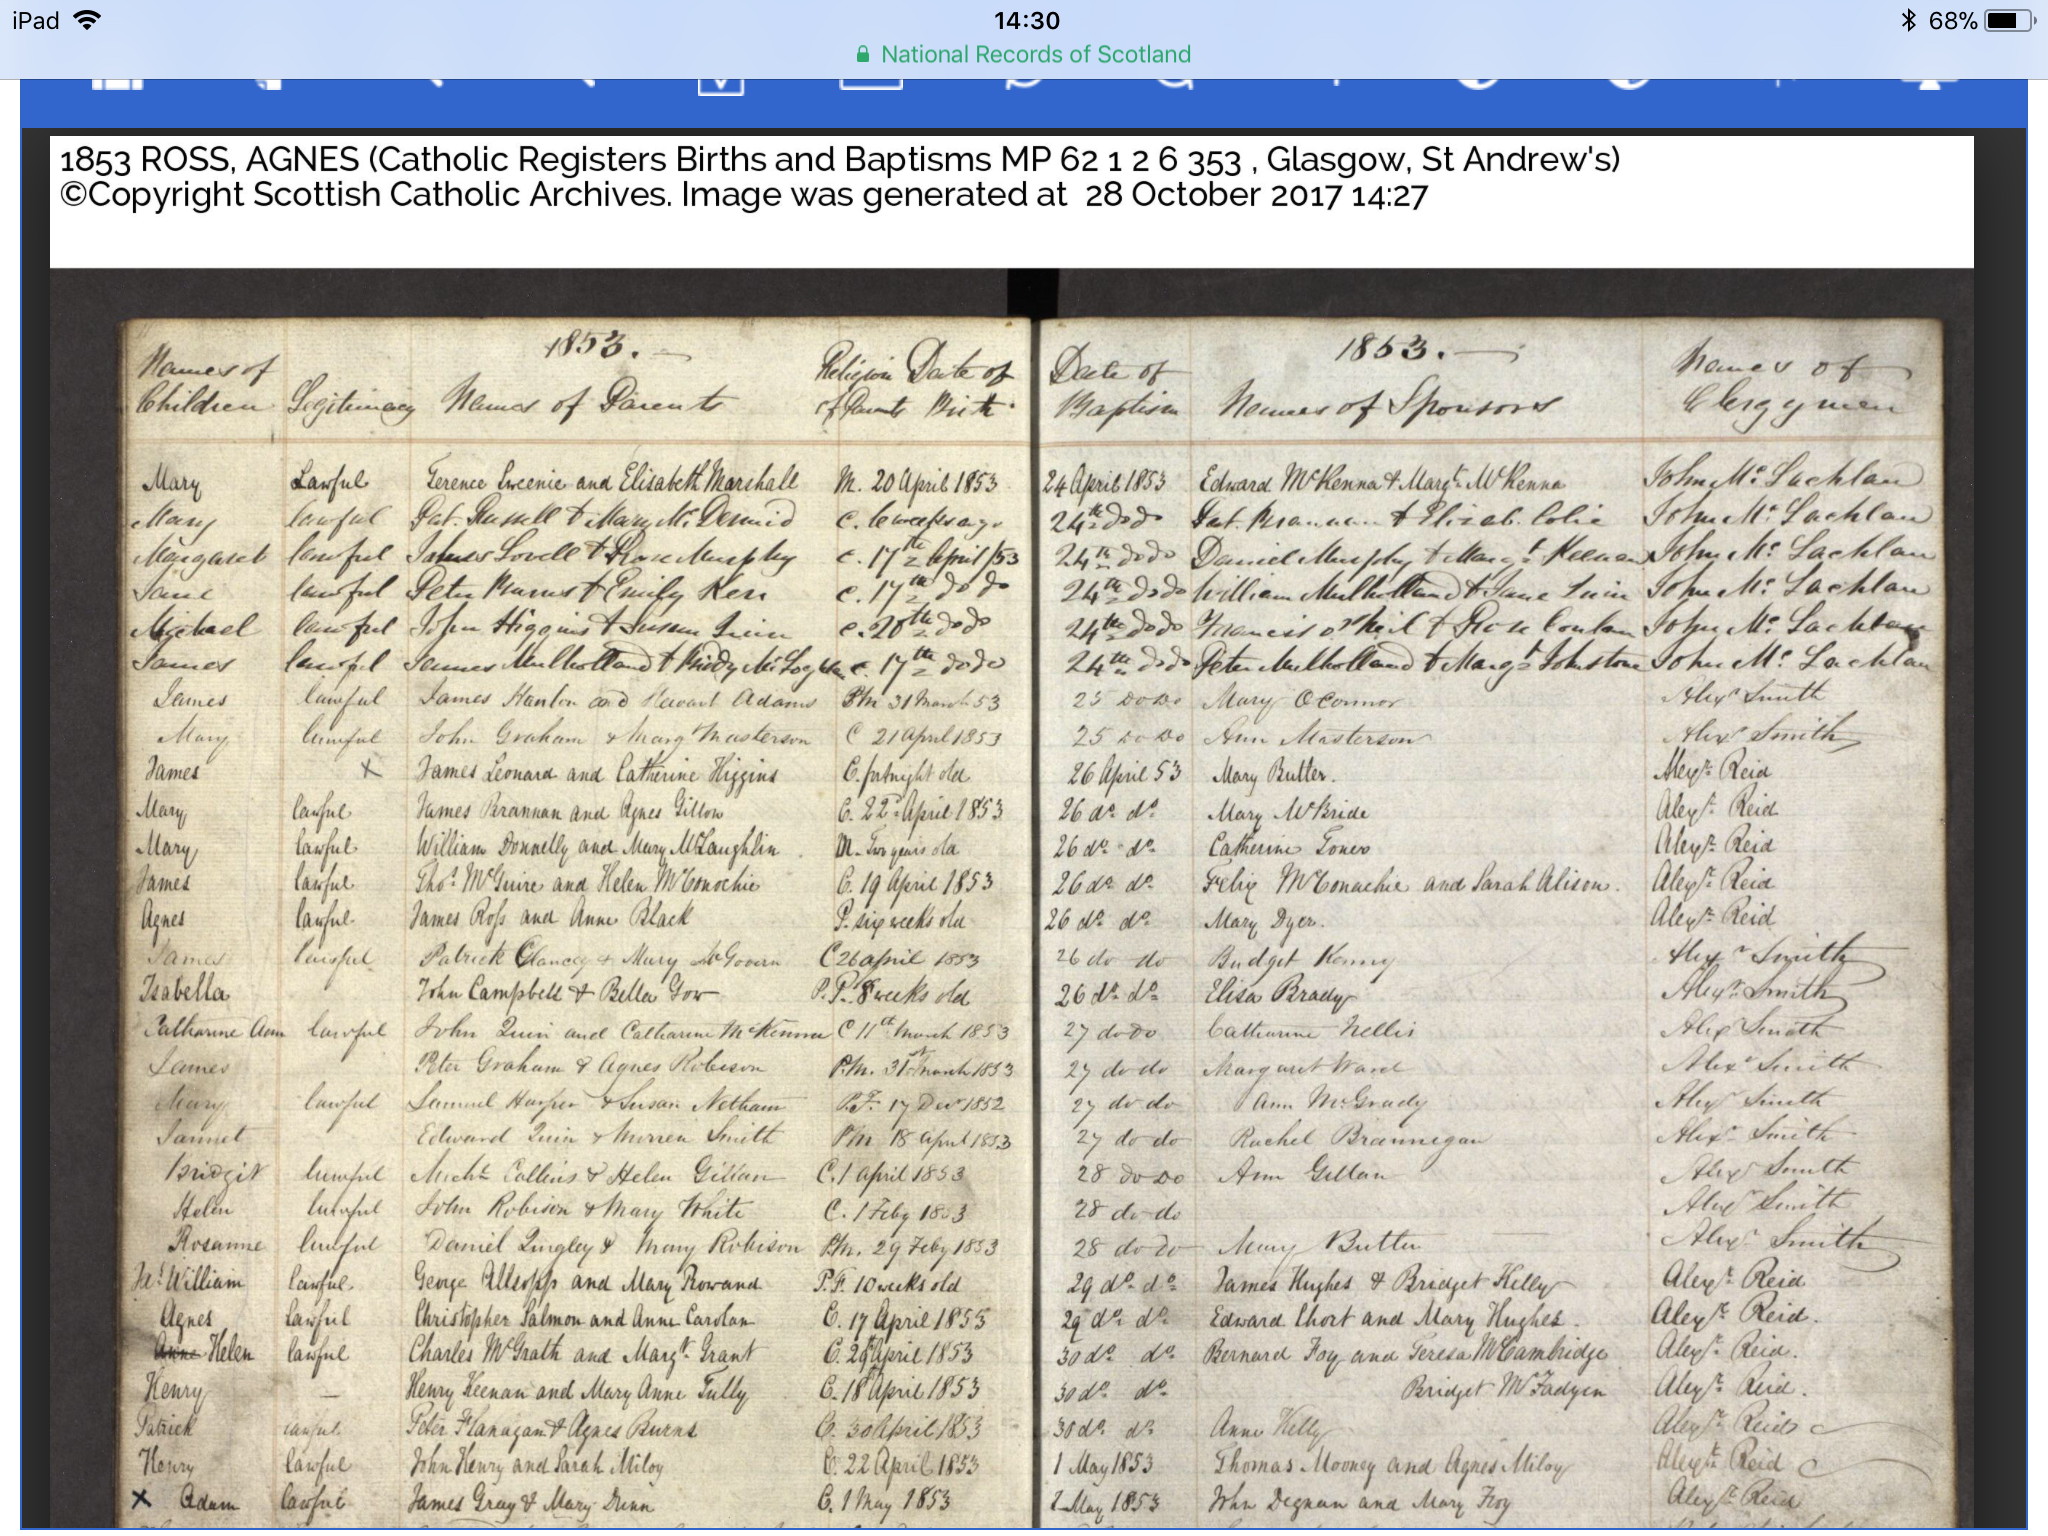 iPad 14:30 68%
National Records of Scotland
1853 ROSS, AGNES (Catholic Registers Births and Baptisms MP 62 1 2 6 353 , Glasgow, St Andrew's)
©Copyright Scottish Catholic Archives. Image was generated at 28 October 2017 14:27
1853. 1853.
Names of Children Legitimacy Names of Parents Religion of Parents Date of Birth Date of Baptism Names of Sponsors Names of Clergymen
Mary Lawful Terence and Elisabeth Marshall M. 20 April 1853 24 April 1853 Edward McKenna & Margt. McKenna John Mc Lachlan
Mary lawful Pat. Russell & Mary Mc Dermid C. 6 weeks ago 24th do do Pat. Brannan & Elizab. John Mc Lachlan
Margaret lawful James Lovell & Rose Murphy C. 17th April /53 24th do do Daniel Murphy & Margt Keenan John Mc Lachlan
Jane lawful Peter & Emily Kerr C. 17th do do 24th do do William Mulholland & Jane Quin John Mc Lachlan
Michael lawful John Higgins & Susan C. 20th do do 24th do do Francis O'Neil & Rose Conlan John Mc Lachlan
James lawful James Mulholland & Biddy Mc C. 17th do do 24th do do Peter Mulholland & Margt Johnstone John Mc Lachlan
James lawful James Hanlon and Adams PM 31 March 53 25 do do Mary O Connor Alexr Smith
Mary lawful John Graham & Marg Masterson C 21 April 1853 25 do do Ann Masterson Alexr Smith
James x James Leonard and Catherine Higgins C. fortnight old 26 April 53 Mary Butler. Alexr. Reid
Mary lawful James Brannan and Agnes Gillow C. 22d April 1853 26 do. do. Mary McBride Alexr. Reid
Mary lawful William Donnelly and Mary McLaughlin M. Two years old 26 do. do. Catherine Alexr. Reid
James lawful Thos. McGuire and Helen McConochie C. 19 April 1853 26 do. do. Felix McConachie and Sarah Alison. Alexr. Reid
Agnes lawful James Ross and Anne Black P. six weeks old 26 do. do. Mary Dyer. Alexr. Reid
James lawful Patrick Clancey & Mary McGovern C 26 april 1853 26 do do Bridget Kenny Alexr Smith
Isabella John Campbell & Bella Gow P.P. 8 weeks old 26 do. do. Elisa Brady Alexr. Smith
Catharine Ann lawful John Quin and Catharine McKenna C 11th March 1853 27 do do Catharine Nellis Alexr Smith
James Peter Graham & Agnes Robison P.M. 31st march 1853 27 do do Margaret Ward Alexr Smith
Mary lawful Samuel Harper & Susan Netham P.F. 17 Decr 1852 27 do do Ann McGrady Alexr Smith
Jannet Edward Quin & Smith PM 18 april 1853 27 do do Rachel Brannegan Alexr Smith
Bridgit lawful Michl Collins & Helen Gillan C. 1 april 1853 28 do do Ann Gillan Alexr Smith
Helen lawful John Robison & Mary White C. 1 Feby 1853 28 do do Alexr Smith
Rosanne lawful Daniel Quigley & Mary Robison P.M. 29 Feby 1853 28 do do Mary Butler Alexr Smith
Jas. William lawful. George Allsopp and Mary Rowand P.F. 10 weeks old 29 do. do. James Hughes & Bridget Kelly Alexr. Reid
Agnes Lawful Christopher Salmon and Anne Carolan C. 17 April 1853 29 do. do. Edward Short and Mary Hughes. Alexr. Reid.
Anne Helen lawful Charles McGrath and Margt. Grant C. 29 April 1853 30 do. do. Bernard Foy and Teresa McCambridge Alexr. Reid.
Henry — Henry Keenan and Mary Anne Tully C. 18 April 1853 30 do. do. Bridget McFadyen Alexr. Reid.
Patrick lawful Peter Flanagan & Agnes Burns C. 30 April 1853 30 do. do. Anne Kelly Alexr. Reid
Henry lawful John Henry and Sarah Miloy C. 22 April 1853 1 May 1853 Thomas Mooney and Agnes Miloy Alexr. Reid
x Adam lawful James Gray & Mary Dunn C. 1 May 1853 1 May 1853 John Degnan and Mary Foy Alexr. Reid